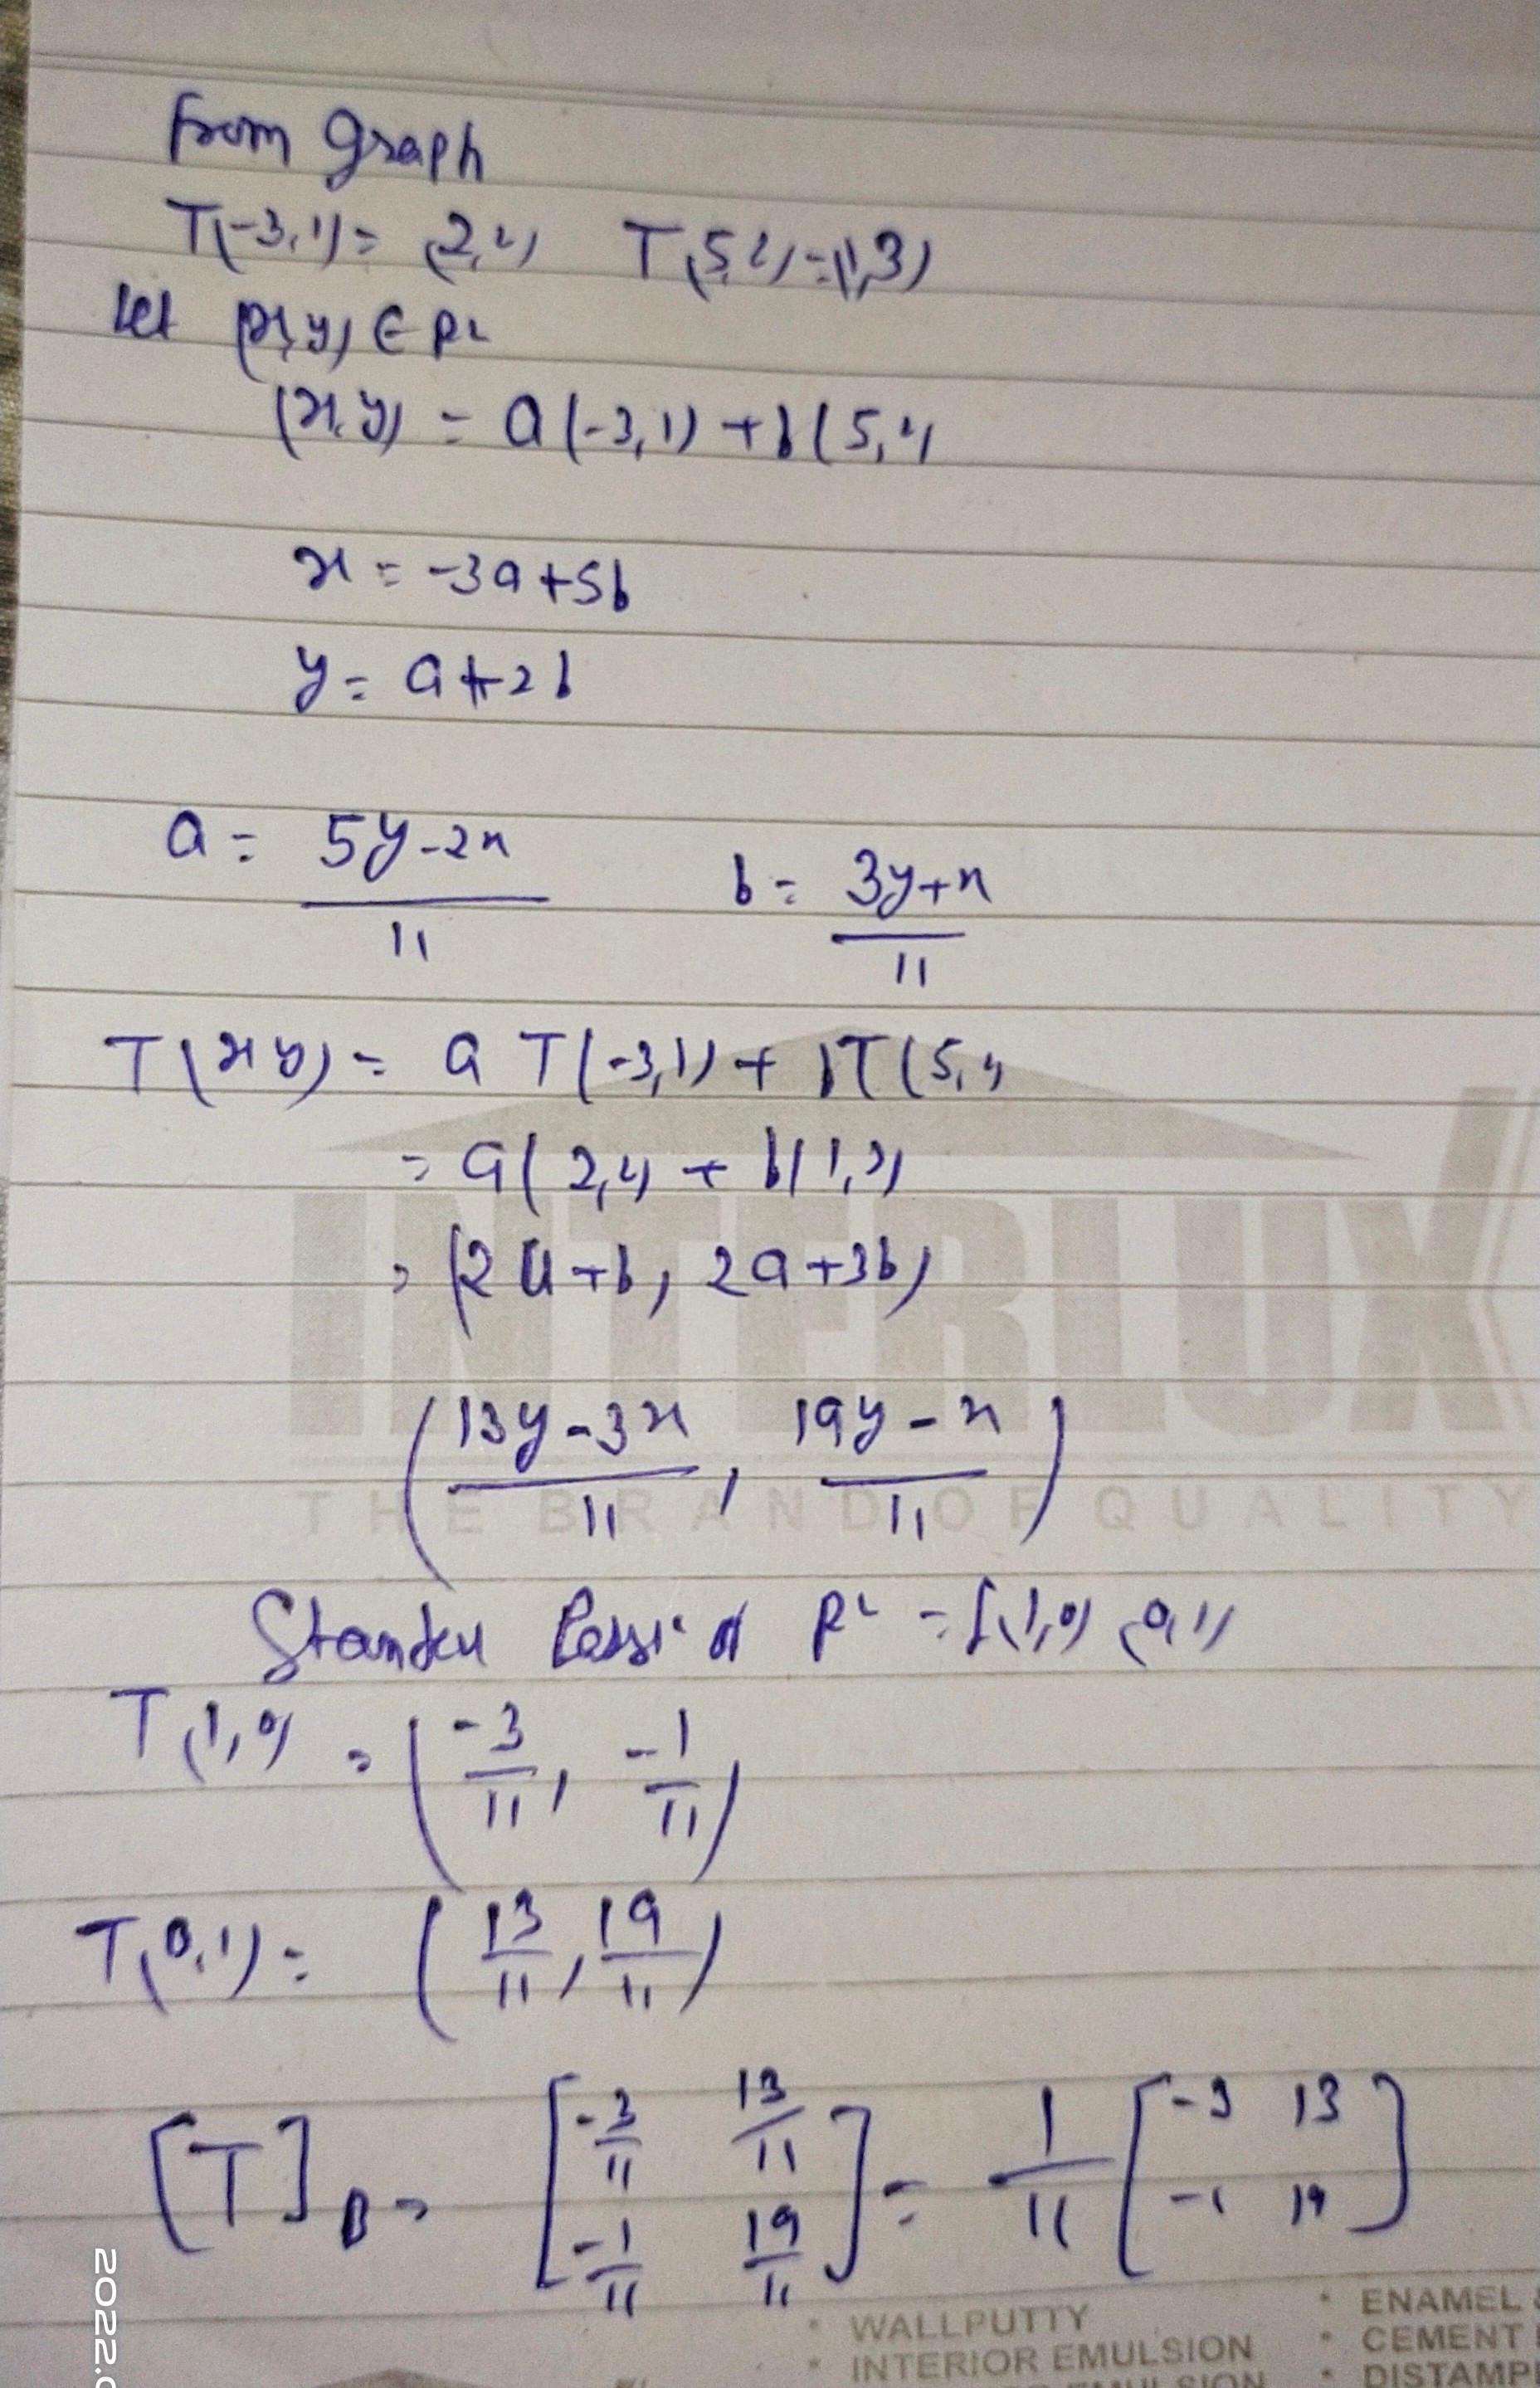 From graph
T(-3,1) = (2,2) T(5,2) = (1,3)
Let (x,y) ∈ R²
(x,y) = a(-3,1) + b(5,2)
x = -3a+5b
y = a+2b
a = \frac{5y-2x}{11} b = \frac{3y+x}{11}
T(x y) = a T(-3,1) + bT(5,2)
= a(2,2) + b(1,3)
= (2a+b, 2a+3b)
(\frac{13y-3x}{11}, \frac{19y-x}{11})
of R² = {(1,0) (0,1)
T(1,0) = (\frac{-3}{11}, \frac{-1}{11})
T(0,1) = (\frac{13}{11}, \frac{19}{11})
[T]_B = \begin{bmatrix} \frac{-3}{11} & \frac{13}{11} \\ \frac{-1}{11} & \frac{19}{11} \end{bmatrix} = \frac{1}{11} \begin{bmatrix} -3 & 13 \\ -1 & 19 \end{bmatrix}
INTERLUX
THE BRAND OF QUALITY
• WALLPUTTY
• INTERIOR EMULSION
• ENAMEL &
• CEMENT
• DISTAMP
2022.